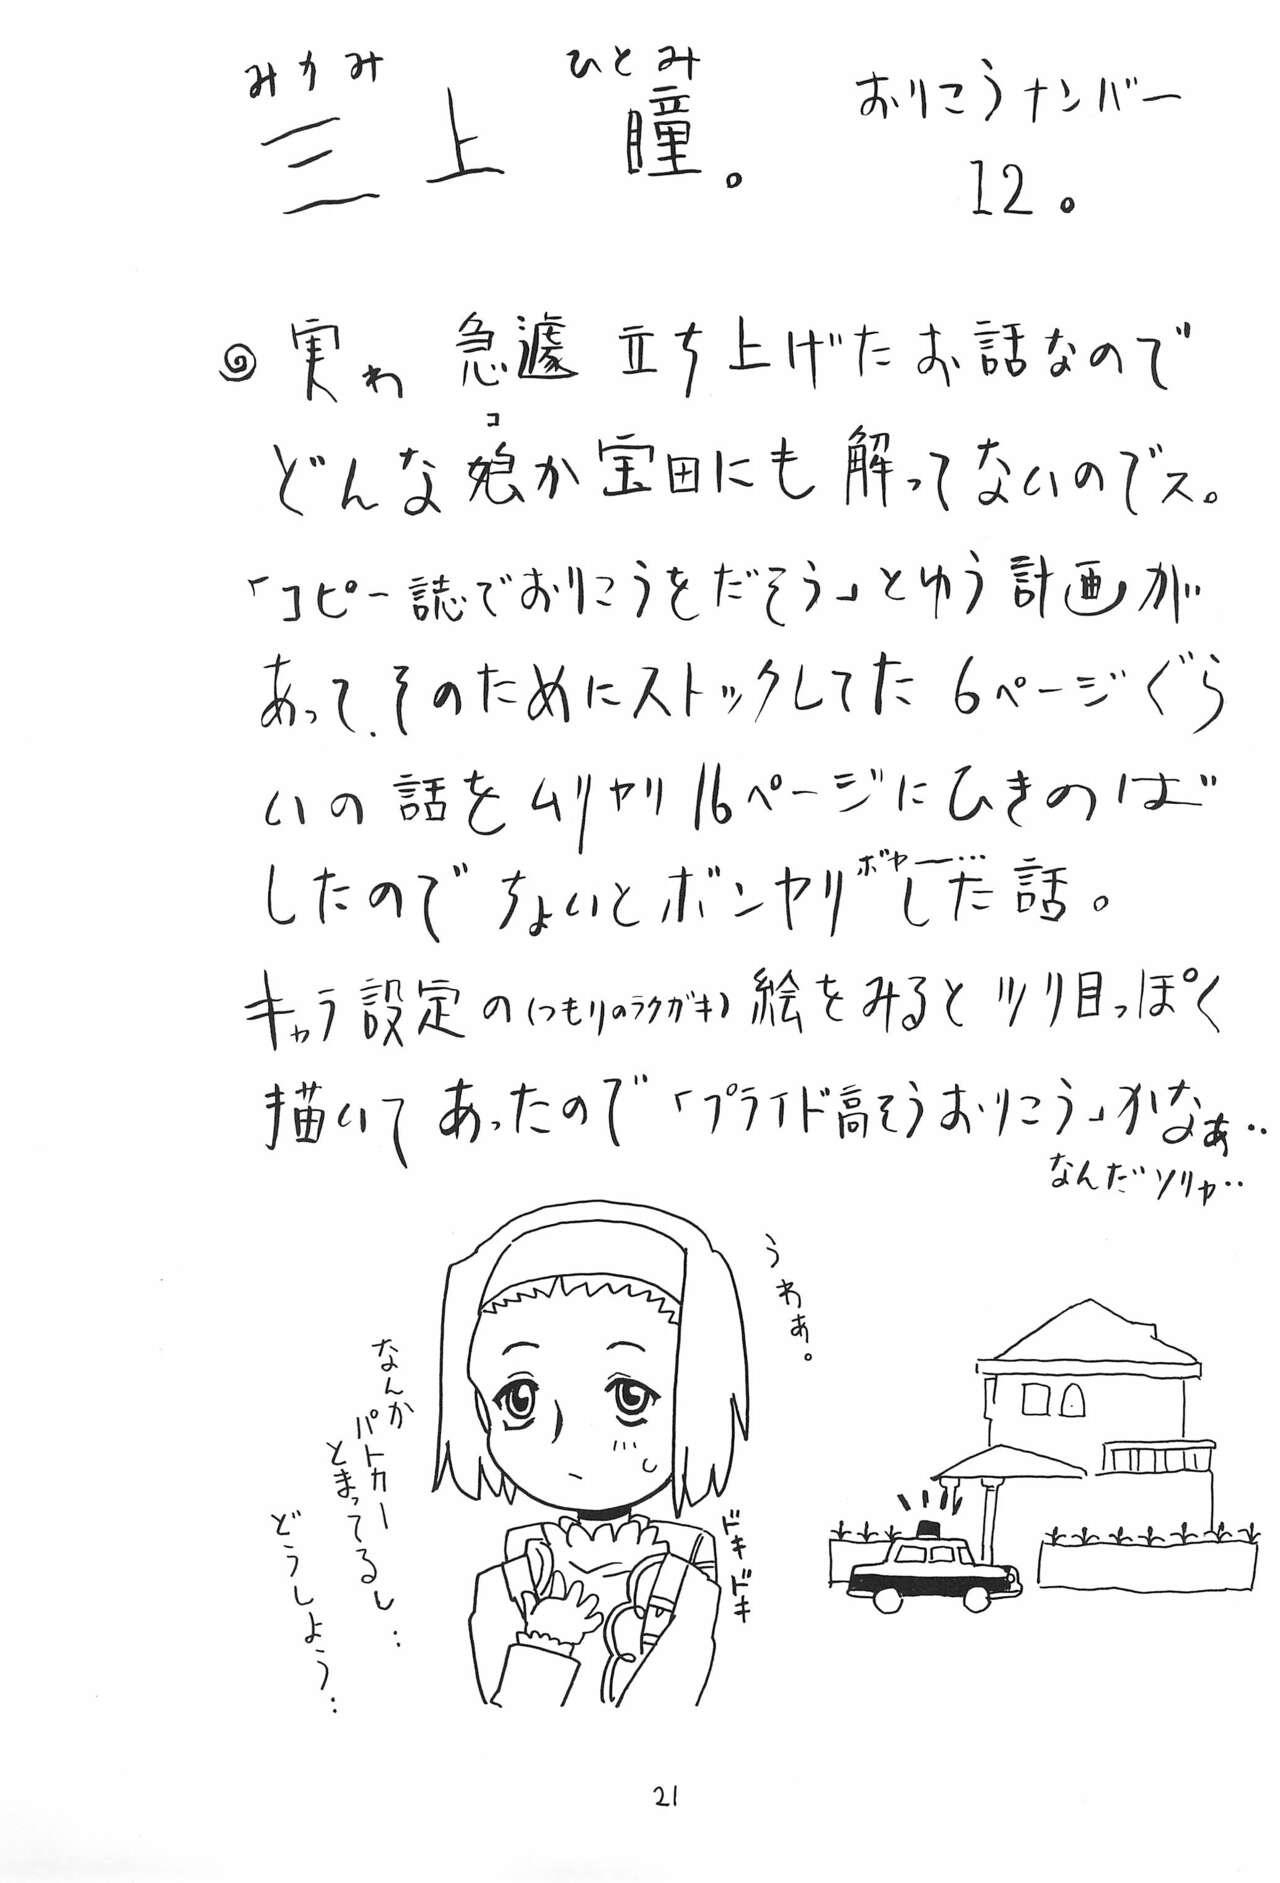 みかみ ひとみ
三上 瞳。
おりこうナンバー
12。
実わ 急遽 立ち上げたお話なので
コ
どんな娘か宝田にも 解ってないのでス。
「コピー誌でおりこうをだそう」とゆう計画が
あって、そのためにストックしてた 6ページぐら
いの 話を ムリヤリ 16ページにひきのば
したので ちょいと ボンヤリした話。
ボヤー…
キャラ設定の(つもりのラクガキ) 絵をみると ツリ目っぽく
描いて あったので 「プライド高そうおりこう」かなぁ‥
なんだソリャ‥
うわぁ。
なんか
パトカー
とまってるし…
どうしよう…
ドキドキ
21